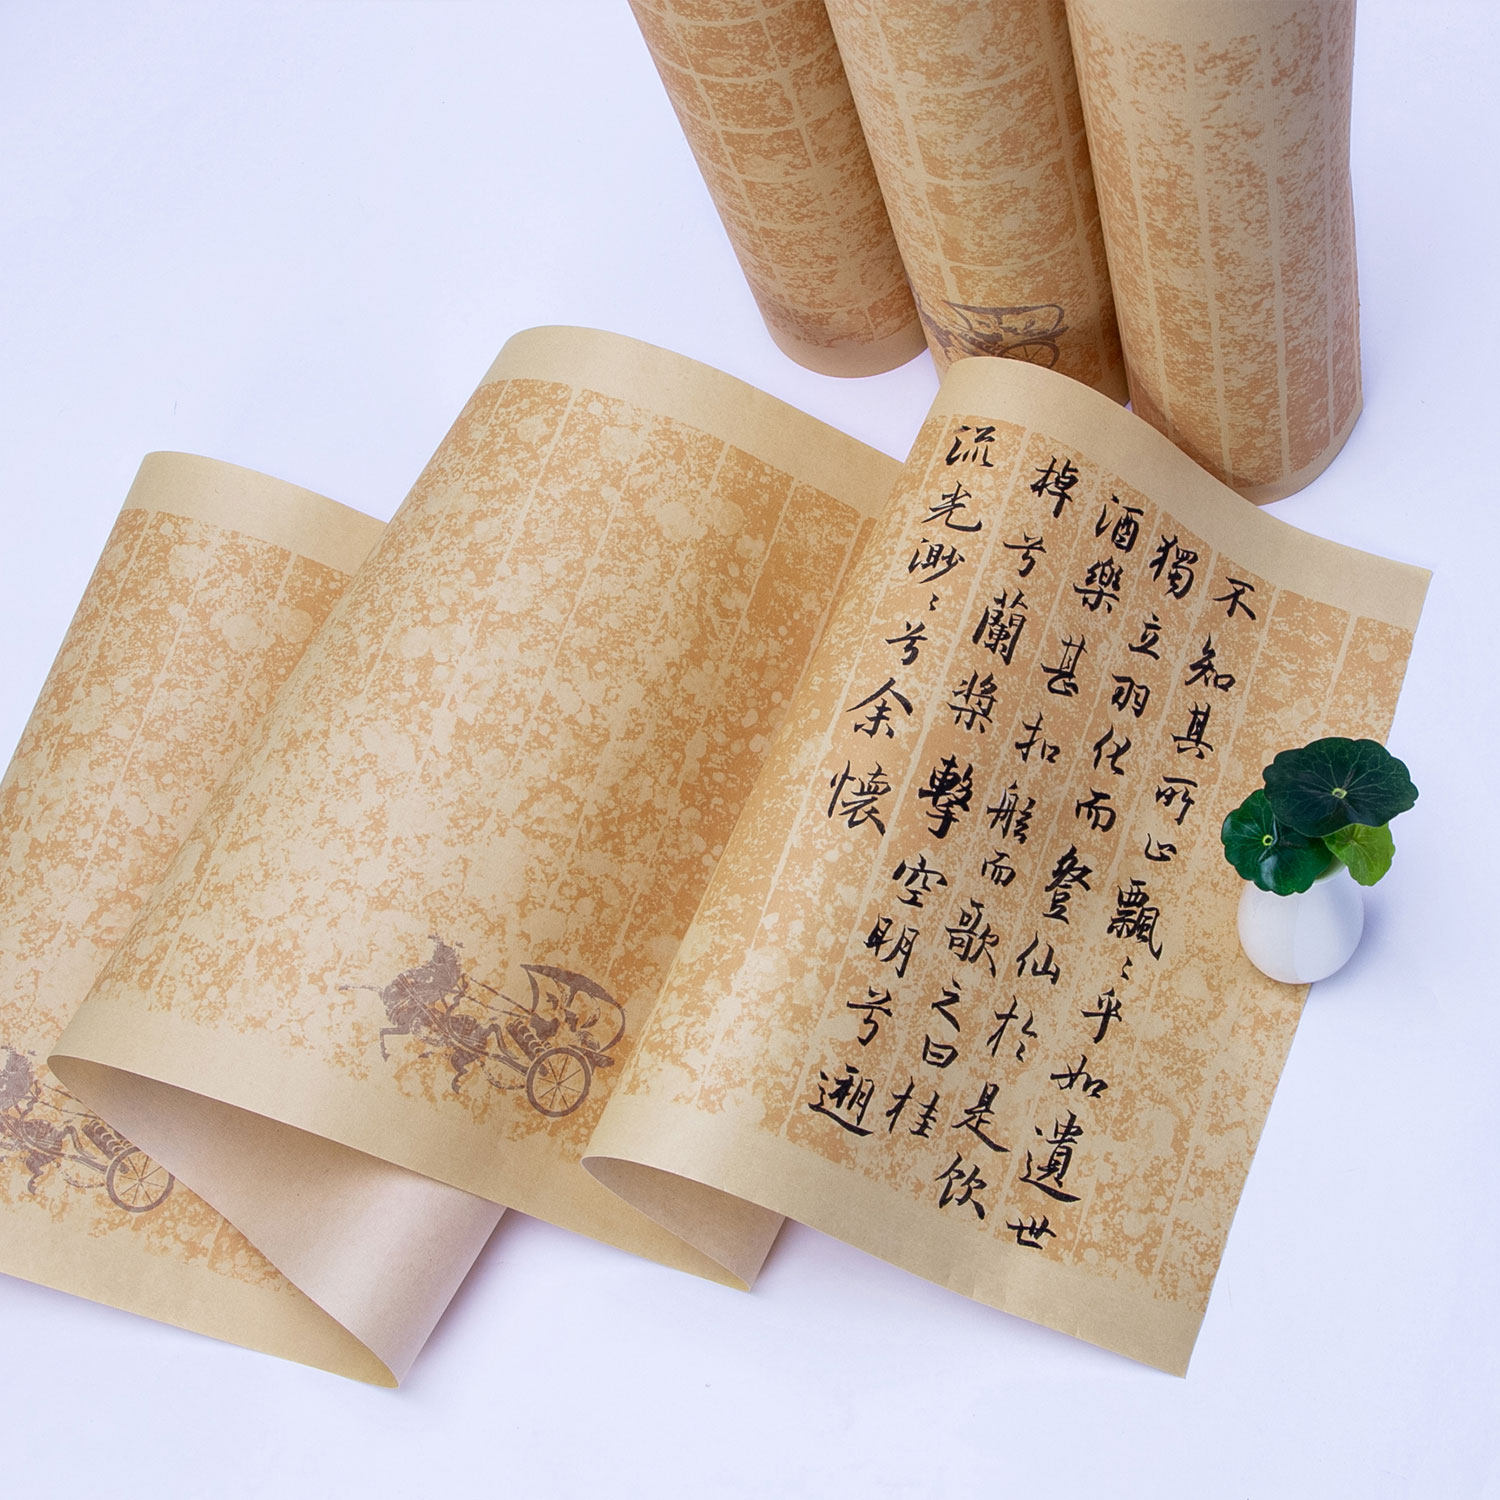 不知其所止飄〻乎如遺世
獨立羽化而登仙於是飲
酒樂甚扣舷而歌之曰桂
棹兮蘭槳擊空明兮遡
流光渺〻兮余懷